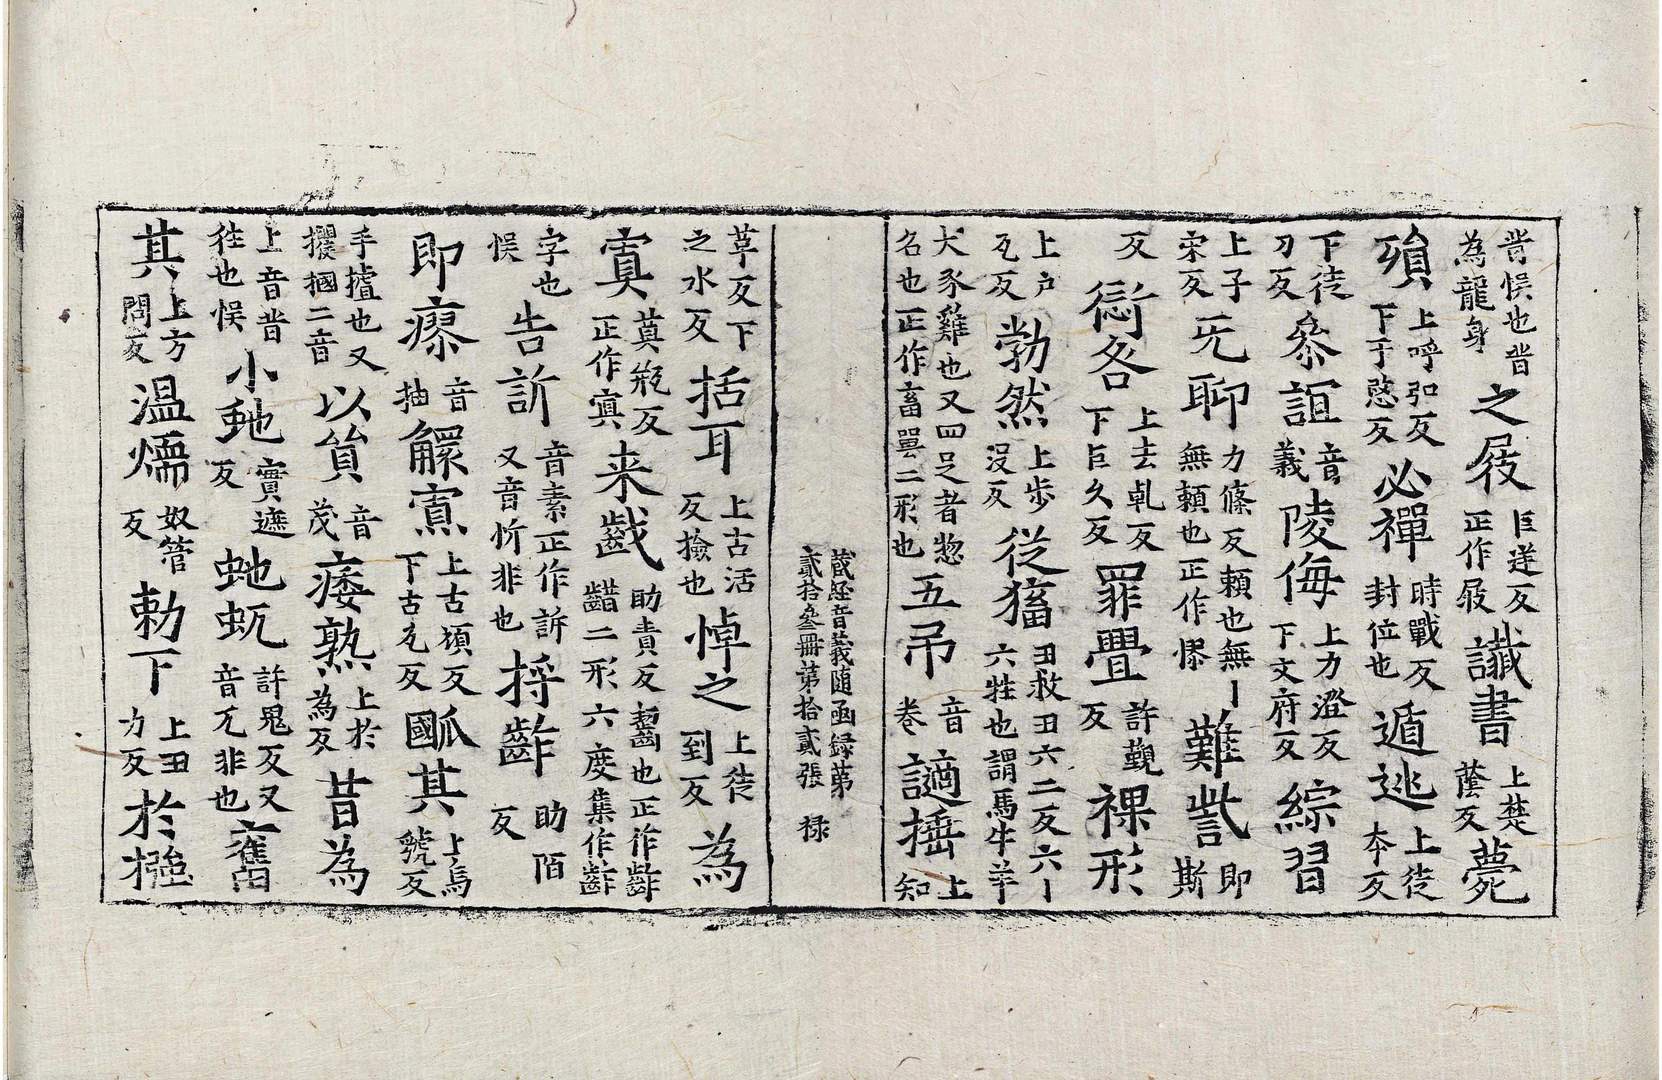 訾悮也訾為龍身之屐巨逆反正作屐讖書上楚蔭反薨
殞上呼弘反下于愍反必禪時戰反封位也遁逃上徒本反
下徒刀反叅誼音義陵侮上力澄反下文府反綜習
上子宋反无聊力條反賴也無丨無賴也正作憀難訾即斯
反愆咎上去乹反下巨久反罪舋許覲反裸形
上户瓦反勃然上步沒反從犙丑救丑六二反六丨六牲也謂馬牛羊
犬豕雞也又四足者惣名也正作畜嘼二形也五吊音卷謫捶上知
蔵経音義随函録第貳拾叄冊第拾貳張 禄
革反下之水反括耳上古活反撿也悼之上徒到反為
寘莫瓶反正作寘来齜助責反齧也正作齰齚二形六度集作齚
字也悮告訢音素正作訴又音忻非也捋齰助陌反
即瘵音抽鰥寡上古頑反下古瓦反聝其上烏虢反
手攎也又攫摑二音以貿音茂痿熟上於為反昔為
上音昔徃也悮小虵實遮反虵虺許鬼反又音兀非也舊
其上方問反温燸奴管反勅下上丑力反於